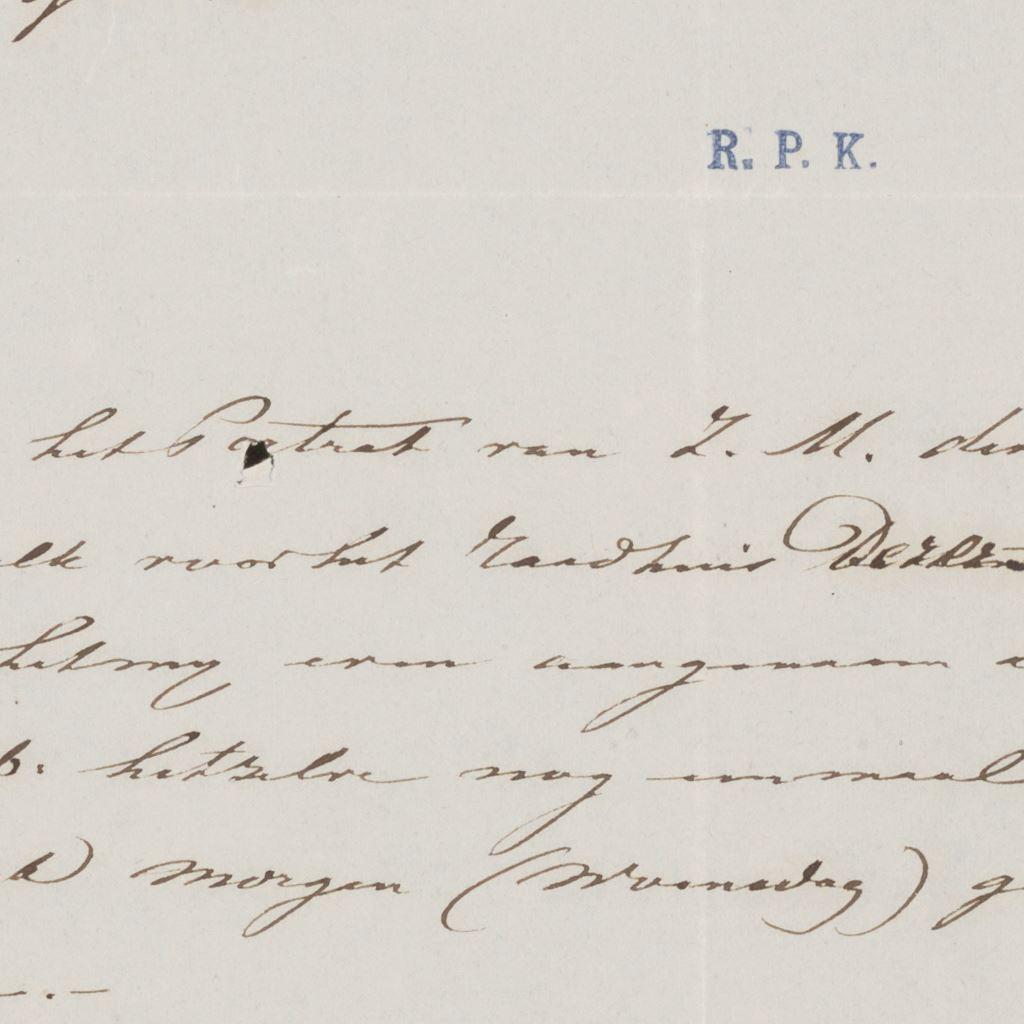 R. P. K.
het Portret van Z. M. den
elk voor het Raadhuis
het my even aangenaam
hetzelve nog eenmaal
morgen (Woensdag) g